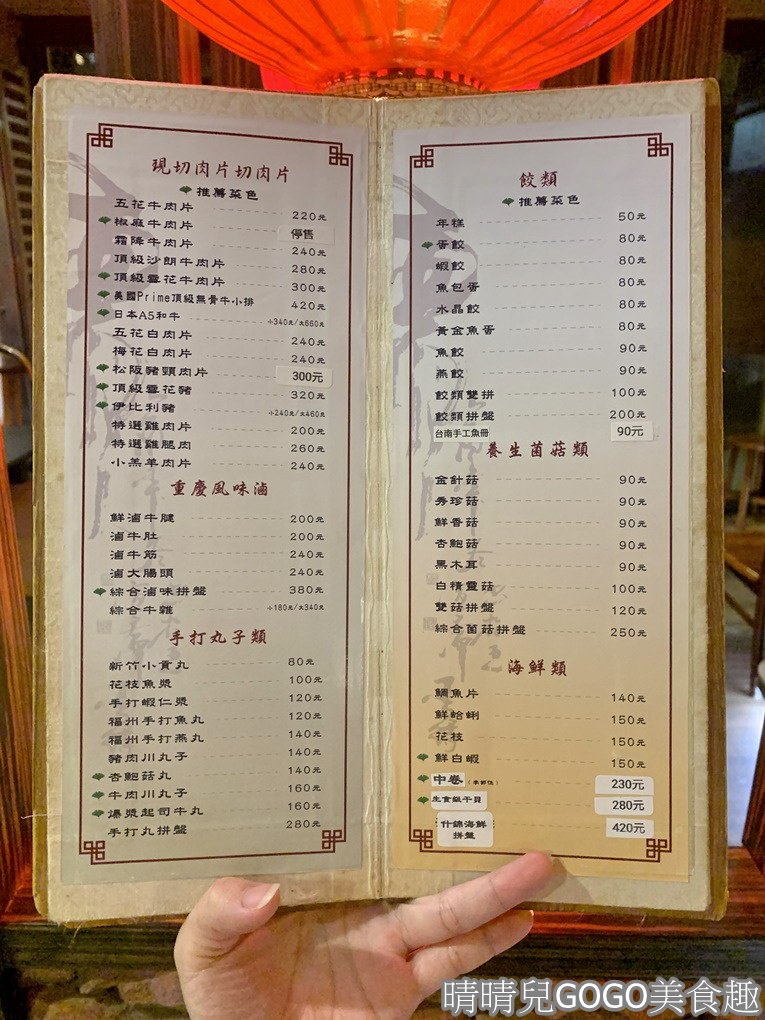 現切肉片切肉片
推薦菜色
五花牛肉片 220元
椒麻牛肉片 停售
霜降牛肉片 240元
頂級沙朗牛肉片 280元
頂級雪花牛肉片 300元
美國Prime頂級無骨牛小排 420元
日本A5和牛 小340元/大660元
五花白肉片 240元
梅花白肉片 240元
松阪豬頸肉片 300元
頂級雪花豬 320元
伊比利豬 小240元/大460元
特選雞肉片 200元
特選雞腿肉 260元
小羔羊肉片 240元
重慶風味滷
鮮滷牛腱 200元
滷牛肚 200元
滷牛筋 240元
滷大腸頭 240元
綜合滷味拼盤 380元
綜合牛雜 小180元/大340元
手打丸子類
新竹小貢丸 80元
花枝魚漿 100元
手打蝦仁漿 120元
福州手打魚丸 120元
福州手打燕丸 140元
豬肉川丸子 140元
杏鮑菇丸 140元
牛肉川丸子 160元
爆漿起司牛丸 160元
手打丸拼盤 280元
餃類
推薦菜色
年糕 50元
蛋餃 80元
蝦餃 80元
魚包蛋 80元
水晶餃 80元
黃金魚蛋 80元
魚餃 90元
燕餃 90元
餃類雙拼 100元
餃類拼盤 200元
台南手工魚冊 90元
養生菌菇類
金針菇 90元
秀珍菇 90元
鮮香菇 90元
杏鮑菇 90元
黑木耳 90元
白精靈菇 100元
雙菇拼盤 120元
綜合菌菇拼盤 250元
海鮮類
鯛魚片 140元
鮮蛤蜊 150元
花枝 150元
鮮白蝦 150元
中卷(季節性) 230元
生食級干貝 280元
什錦海鮮 420元
拼盤
晴晴兒GOGO美食趣